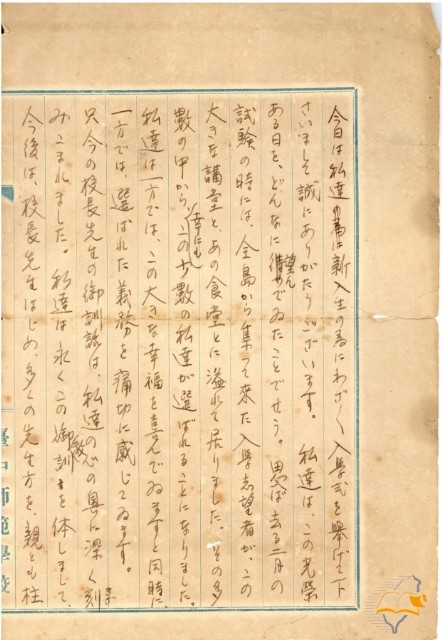 今日は私達新入生の為にわざ〱入學式を擧げて下
さいまして誠にありがたうございます。 私達は、この光榮
ある日を、どんなに望んでゐたことでせう。 思ば去る二月の
試驗の時には、全島から集って來た入學志望者が、この
大きな講堂と、あの食堂とに溢れて居りました。その多
數の中から、幸にもこの少數の私達が選ばれることになりました。
私達は一方では、この大きな幸福を喜んでゐますと同時に、
一方では、選ばれた義務を痛切に感じてゐます。
只今の校長先生の御訓話は、私達の心の奥に深く刻
みこまれました。 私達は永くこの御訓を体しまして、
今後は、校長先生はじめ、多くの先生方を、親とも柱
臺中師範學校